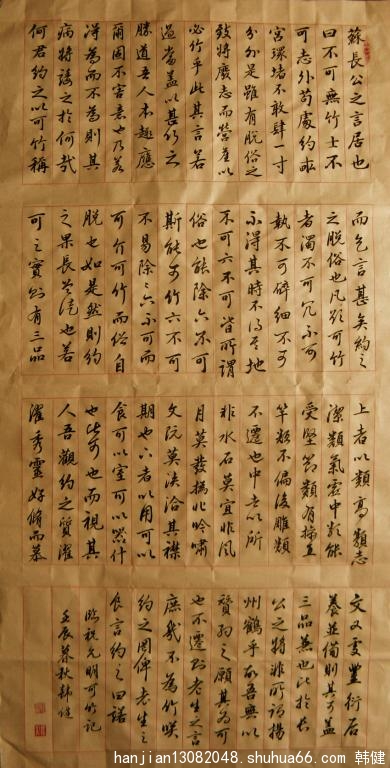 蘇長公之言居也
曰不可無竹士不
可志外苟處約求
宮環堵不敢肆一寸
分外是雖有脫俗之
致將廢志而營屋以
必竹乎此其言若
過當蓋以甚俗云
勝道吾人本趣應
爾固不害意也乃若
得為而不為則其
病將諉之於何哉
何君約之以可竹稱
而乞言甚矣約之
之脫俗也凡欲可竹
者濁不可冗不可
執不可僻細不可
不得其時不得其地
不可六不可皆所謂
俗也能除六不可
斯能可竹六不可
不易除六不可而
可竹可竹而俗自
脫也如是然則約
之果長公徒也若
可之實則有三品
上者以類高類志
潔類氣虛中類能
受堅剛類有操直
竿類不偏後雕類
不遷也中者以所
非水石莫宜非風
月莫發 吟嘯
文阮莫浹洽其襟
期也下者以用可以
食可以室可以器什
也此可也而視其
人吾觀約之質濯
濯秀靈好脩而慕
文又處豐衍居
養並備則其可蓋
三品兼也此於長
公之將非所謂揚
州鶴乎 吾無以
贊約之願其為可
也不遷則老生之言
庶幾不為竹唉
約之罔俾老生之
食言約之曰諾
臨祝允明可竹記
壬辰暮秋韓健
hanjian13082048.shuhua66.com 韩健